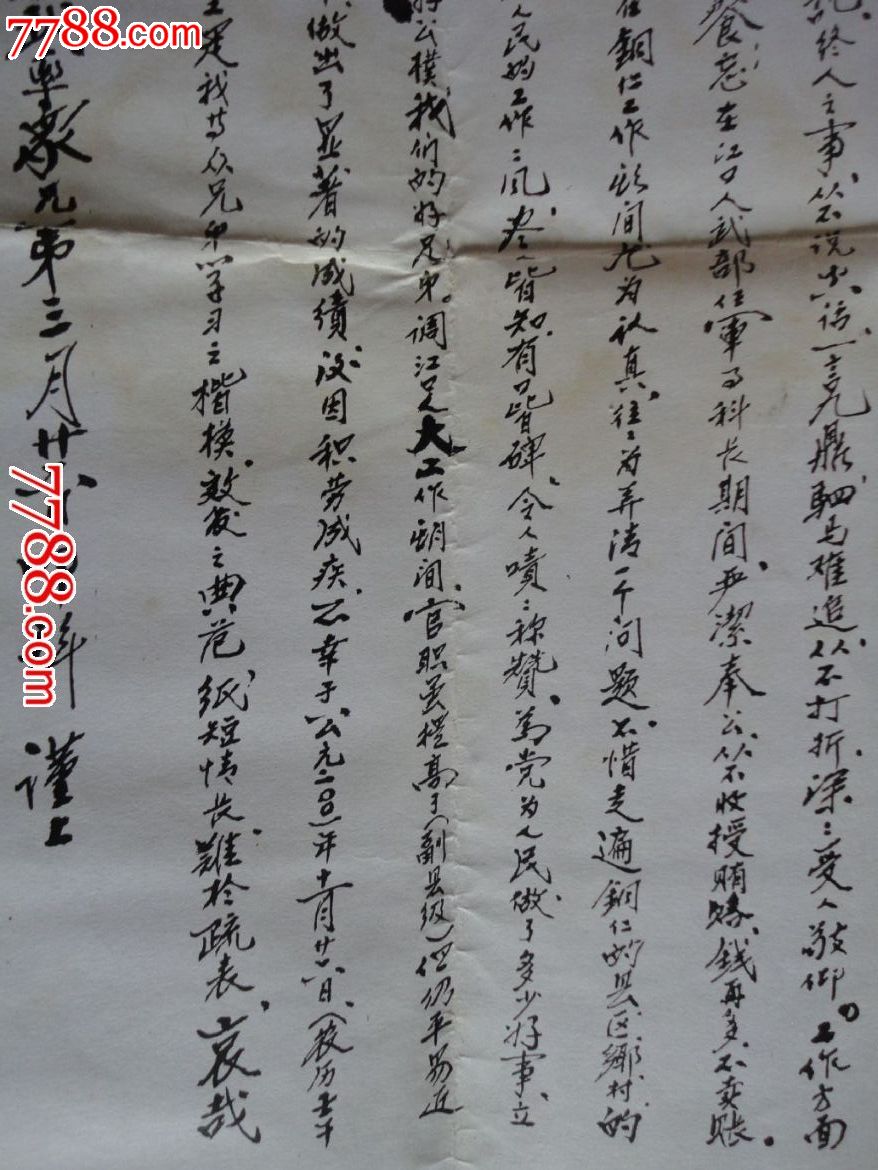 託、终人之事、从不说空话、一言九鼎、駟马难追、从不打折、深〻受人敬仰。工作方面
餐、忘、在江口人武部任軍事科长期间、奉公、从不收授賄賂、钱再多、不卖賬。
任銅仁工作期间尤为认真、往〻为弄清一个问题、不惜走遍銅仁的县、区、鄉、村、的
人民的工作〻風、尽、皆知、有口皆碑、令人嘖〻称贊、為党为人民做了多少好事、立
公樸、我们的好兄弟。调江足大工作期间、官职虽提高了（副县级）但仍平易近
做出了显著的成绩、没因积劳成疾、不幸于公元二〇〇年十一月廿六日、（农历壬午
是我等众兄弟学习之楷模、效仿之典范、纸短情长、难於疏表、哀哉
率众兄弟三月廿 谨上
7788.com
7788.com